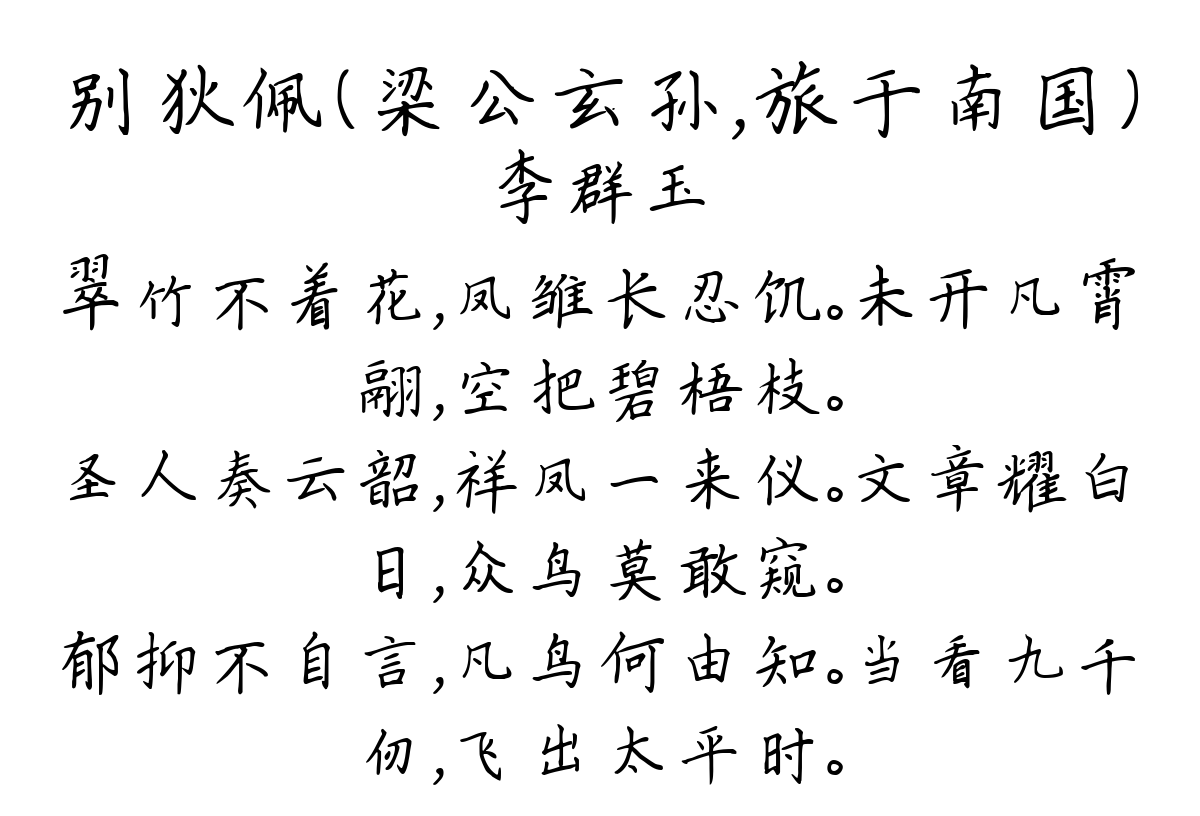 别狄佩(梁公玄孙,旅于南国)
李群玉
翠竹不着花,凤雏长忍饥。未开凡霄
翮,空把碧梧枝。
圣人奏云韶,祥凤一来仪。文章耀白
日,众鸟莫敢窥。
郁抑不自言,凡鸟何由知。当看九千
仞,飞出太平时。